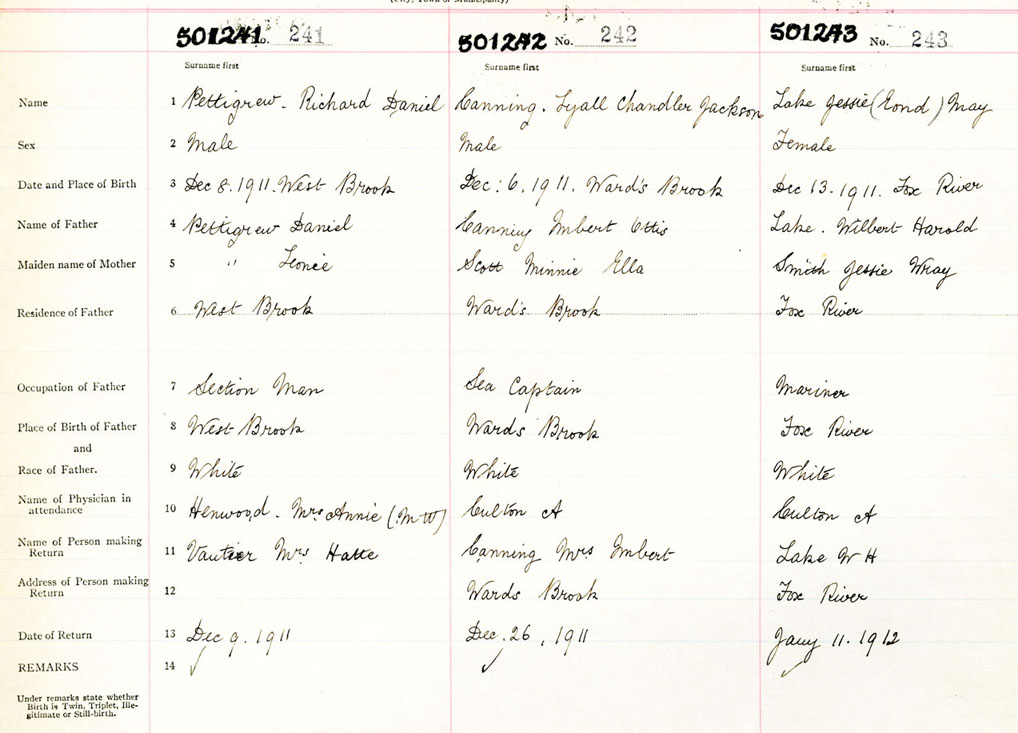 (City, Town or Municipality)
501241 No. 241 501242 No. 242 501243 No. 243
Surname first Surname first Surname first
Name 1 Pettigrew. Richard Daniel Canning. Lyall Chandler Jackson Lake Jessie (Eond) May
Sex 2 Male Male Female
Date and Place of Birth 3 Dec 8. 1911. West Brook Dec: 6. 1911. Ward's Brook Dec 13. 1911. Fox River
Name of Father 4 Pettigrew Daniel Canning Imbert Ottis Lake. Wilbert Harold
Maiden name of Mother 5 " Leonie Scott Minnie Ella Smith Jessie Wray
Residence of Father 6 West Brook Ward's Brook Fox River
Occupation of Father 7 Section Man Sea Captain Mariner
Place of Birth of Father 8 West Brook Wards Brook Fox River
and
Race of Father. 9 White White White
Name of Physician in
attendance 10 Henwood. Mrs Annie (M W) Culton A Culton A
Name of Person making
Return 11 Vautier Mrs Canning Mrs Imbert Lake W H
Address of Person making
Return 12 Wards Brook Fox River
Date of Return 13 Dec 9. 1911 Dec. 26, 1911 Jany 11. 1912
REMARKS 14
Under remarks state whether
Birth is Twin, Triplet, Ille-
gitimate or Still-birth.